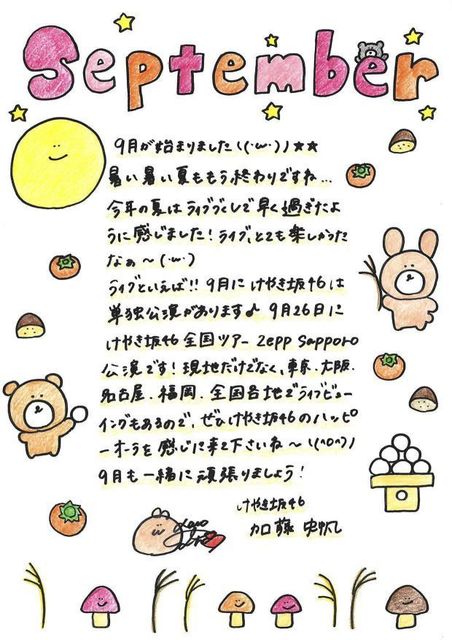 September
9月が始まりました\(・ω・)ノ★★
暑い暑い夏ももう終わりですね…
今年の夏はライブづくしで早く過ぎたよ
うに感じました！ライブ、とても楽しかった
なぁ〜(・ω・)
ライブといえば!!9月にけやき坂46は
単独公演があります♪9月26日に
けやき坂46全国ツアーZepp Sapporo
公演です！現地だけでなく、東京、大阪、
名古屋、福岡、全国各地でライブビュー
イングもあるので、ぜひけやき坂46のハッピ
ーオーラを感じに来て下さいね〜\(^o^)ノ
9月も一緒に頑張りましょう！
けやき坂46
加藤 史帆